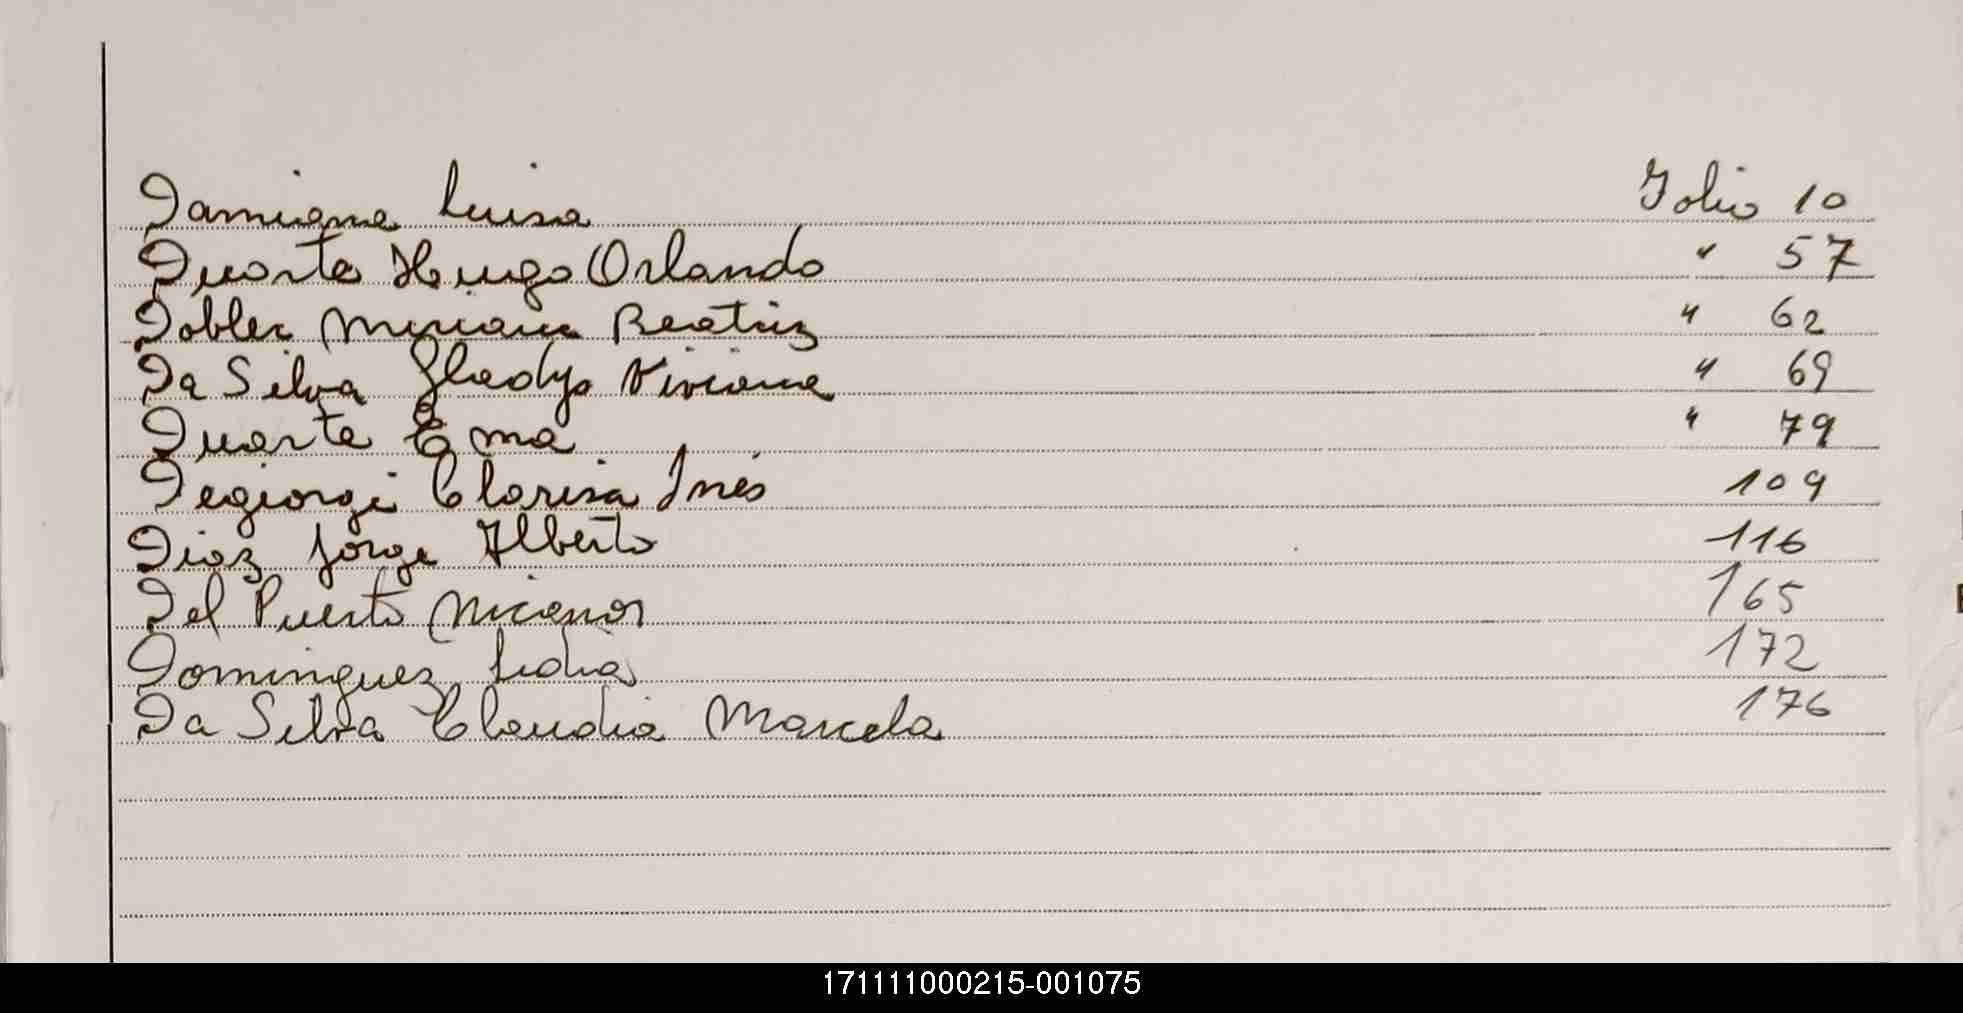 Damiana Luisa Folio 10
Duarte Hugo Orlando " 57
Dobler Miriam Beatriz " 62
Da Silva Gladys Viviana " 69
Duarte Ema " 79
Degiorgi Clarisa Inés 109
Diaz Jorge Alberto 116
Del Puerto Nicanor 165
Dominguez Lidia 172
Da Silva Claudia Marcela 176
171111000215-001075